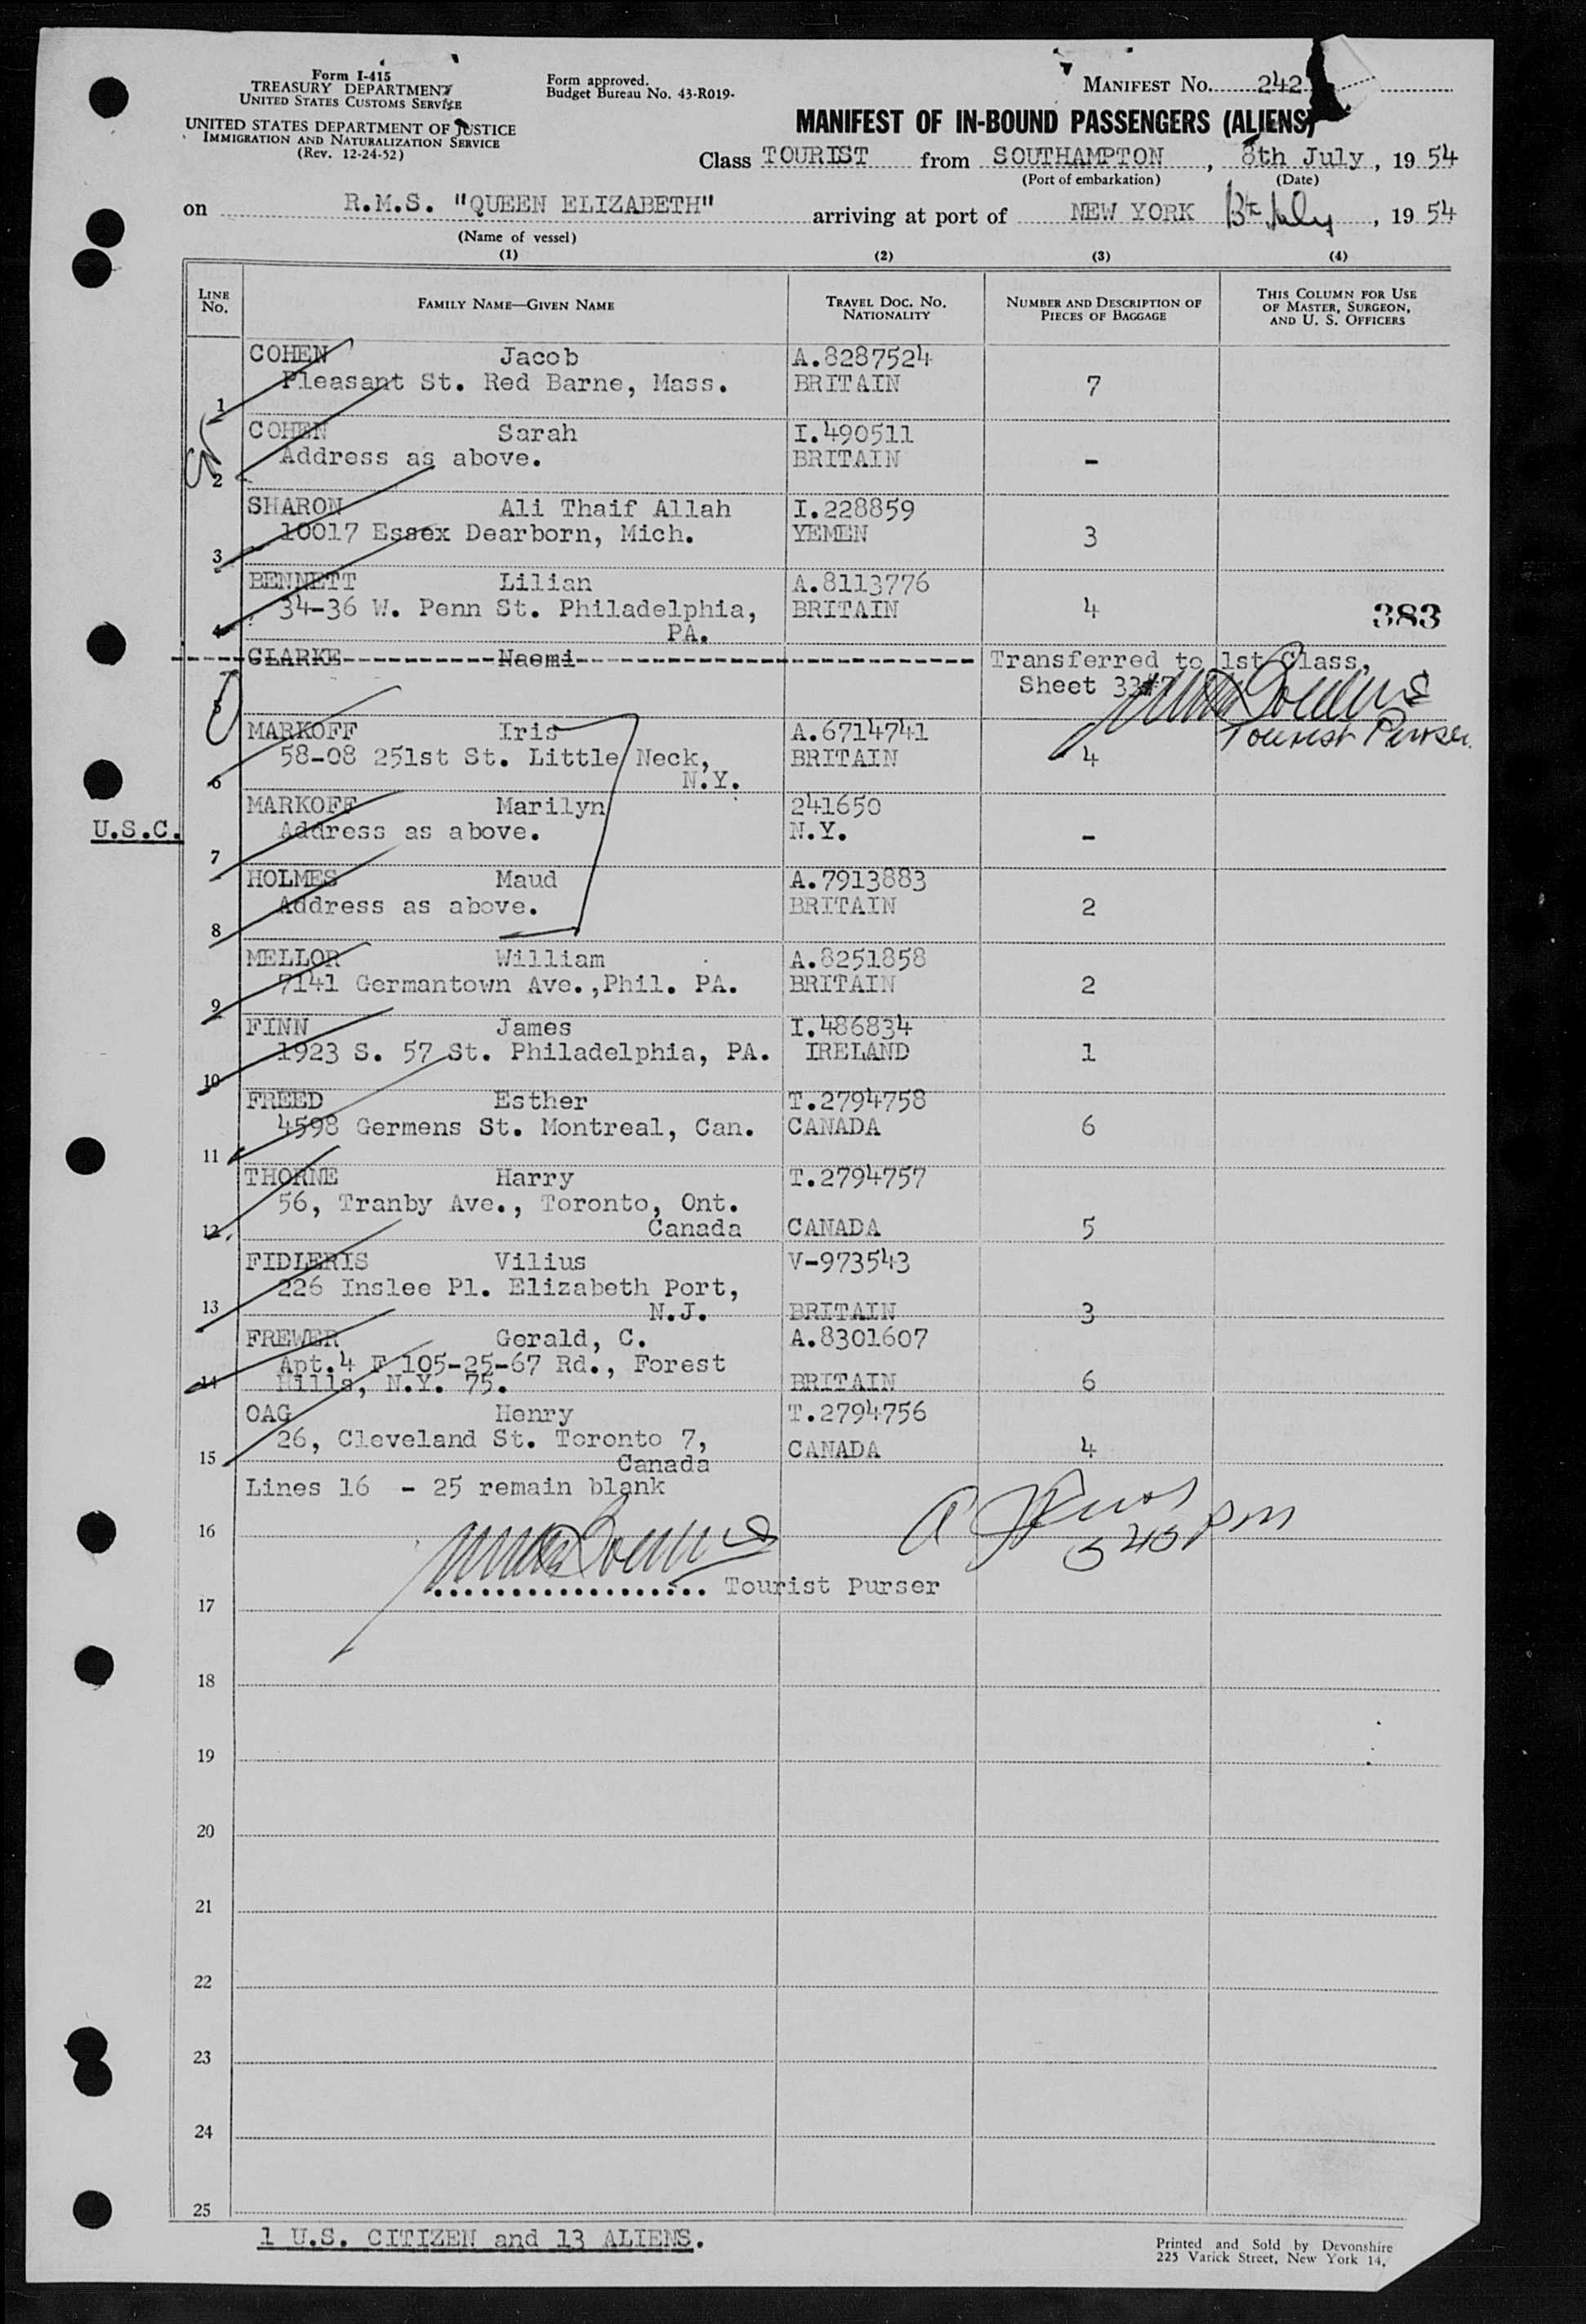 Form I-415
TREASURY DEPARTMENT
UNITED STATES CUSTOMS SERVICE
UNITED STATES DEPARTMENT OF JUSTICE
IMMIGRATION AND NATURALIZATION SERVICE
(Rev. 12-24-52)
Form approved.
Budget Bureau No. 43-R019-
MANIFEST No. 242
MANIFEST OF IN-BOUND PASSENGERS (ALIENS)
Class TOURIST from SOUTHAMPTON, 8th July, 1954
(Port of embarkation) (Date)
on R.M.S. "QUEEN ELIZABETH" arriving at port of NEW YORK 13th July, 1954
(Name of vessel)
(1) (2) (3) (4)
LINE No. FAMILY NAME—GIVEN NAME TRAVEL DOC. NO. NATIONALITY NUMBER AND DESCRIPTION OF PIECES OF BAGGAGE THIS COLUMN FOR USE OF MASTER, SURGEON, AND U. S. OFFICERS
COHEN Jacob A.8287524
Pleasant St. Red Barne, Mass. BRITAIN 7
1
COHEN Sarah I.490511
Address as above. BRITAIN -
2
SHARON Ali Thaif Allah I.228859
10017 Essex Dearborn, Mich. YEMEN 3
3
BENNETT Lilian A.8113776
34-36 W. Penn St. Philadelphia, BRITAIN 4 383
4 PA.
CLARKE Naomi Transferred to 1st Class,
Sheet
5
Tourist Purser.
MARKOFF Iris A.6714741
58-08 251st St. Little Neck, BRITAIN 4
6 N.Y.
MARKOFF Marilyn 241650
U.S.C. Address as above. N.Y. -
7
HOLMES Maud A.7913883
Address as above. BRITAIN 2
8
MELLOR William A.8251858
7141 Germantown Ave.,Phil. PA. BRITAIN 2
9
FINN James I.486834
1923 S. 57 St. Philadelphia, PA. IRELAND 1
10
FREED Esther T.2794758
4598 Germens St. Montreal, Can. CANADA 6
11
THORNE Harry T.2794757
56, Tranby Ave., Toronto, Ont.
12 Canada CANADA 5
FIDLERIS Vilius V-973543
226 Inslee Pl. Elizabeth Port,
13 N.J. BRITAIN 3
FREWER Gerald, C. A.8301607
Apt.4 F 105-25-67 Rd., Forest
14 Hills, N.Y. 75. BRITAIN 6
OAG Henry T.2794756
26, Cleveland St. Toronto 7, CANADA 4
15 Canada
Lines 16 - 25 remain blank
16
540 pm
Tourist Purser
17
18
19
20
21
22
23
24
25
1 U.S. CITIZEN and 13 ALIENS.
Printed and Sold by Devonshire
225 Varick Street, New York 14,